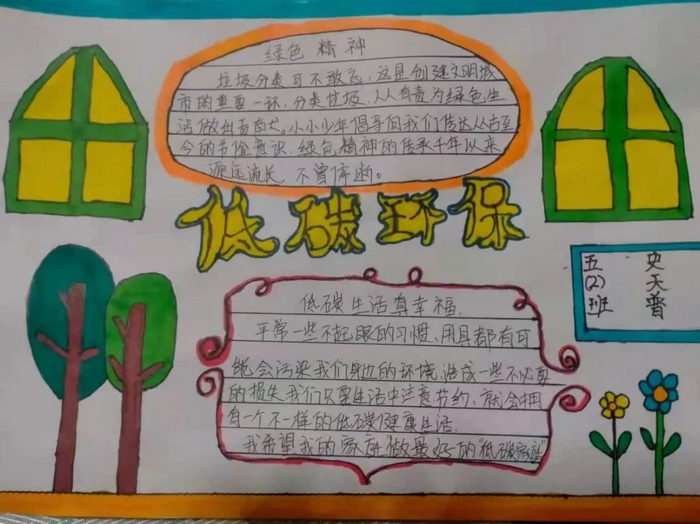 绿色精神
垃圾分类可不敢忘,这是创建文明城
市的重要一环,分类垃圾,人人有责为绿色生
活做出贡献。小小少年倡导向我们传达从古至
今的节俭意识,绿色精神的传承千年以来
源远流长 不曾停断。
低碳环保
五(2)班
史天普
低碳生活真幸福.
平常一些不起眼的习惯、用具都有可
能会污染我们身边的环境,造成一些不必要
的损失,我们只要生活中注意节约,就会拥
有一个不一样的低碳健康生活.
我希望我的家庭做最好的"低碳家庭"